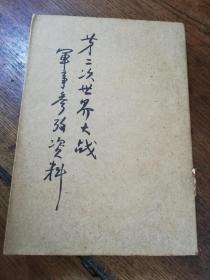 第二次世界大战
軍事参考资料